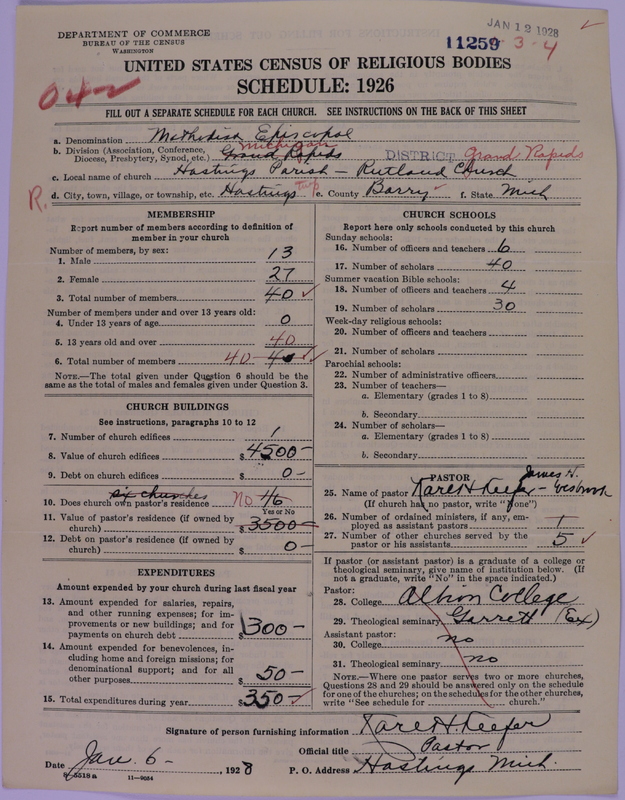 JAN 12 1928
DEPARTMENT OF COMMERCE
BUREAU OF THE CENSUS
WASHINGTON
11259 3-4
UNITED STATES CENSUS OF RELIGIOUS BODIES
SCHEDULE: 1926
FILL OUT A SEPARATE SCHEDULE FOR EACH CHURCH. SEE INSTRUCTIONS ON THE BACK OF THIS SHEET
a. Denomination Methodist Episcopal
Michigan
b. Division (Association, Conference, Diocese, Presbytery, Synod, etc.) Grand Rapids DISTRICT Grand Rapids
c. Local name of church Hastings Parish - Rutland Church
R. d. City, town, village, or township, etc. Hastings twp e. County Barry f. State Mich
MEMBERSHIP
Report number of members according to definition of
member in your church
Number of members, by sex:
1. Male 13
2. Female 27
3. Total number of members 40
Number of members under and over 13 years old:
4. Under 13 years of age 0
5. 13 years old and over 40
6. Total number of members 40 40
NOTE.—The total given under Question 6 should be the
same as the total of males and females given under Question 3.
CHURCH BUILDINGS
See instructions, paragraphs 10 to 12
7. Number of church edifices 1
8. Value of church edifices $ 4500-
9. Debt on church edifices $ 0-
six churches
10. Does church own pastor's residence No 1/6
Yes or No
11. Value of pastor's residence (if owned by
church) $ 3500-
12. Debt on pastor's residence (if owned by
church) $ 0-
EXPENDITURES
Amount expended by your church during last fiscal year
13. Amount expended for salaries, repairs,
and other running expenses; for im-
provements or new buildings; and for
payments on church debt $ 300-
14. Amount expended for benevolences, in-
cluding home and foreign missions; for
denominational support; and for all
other purposes $ 50-
15. Total expenditures during year $ 350-
CHURCH SCHOOLS
Report here only schools conducted by this church
Sunday schools:
16. Number of officers and teachers 6
17. Number of scholars 40
Summer vacation Bible schools:
18. Number of officers and teachers 4
19. Number of scholars 30
Week-day religious schools:
20. Number of officers and teachers
21. Number of scholars
Parochial schools:
22. Number of administrative officers
23. Number of teachers—
a. Elementary (grades 1 to 8)
b. Secondary
24. Number of scholars—
a. Elementary (grades 1 to 8)
b. Secondary
PASTOR
James H.
25. Name of pastor Karl H Keefer -
(If church has no pastor, write "None")
26. Number of ordained ministers, if any, em-
ployed as assistant pastors 1
27. Number of other churches served by the
pastor or his assistants 5
If pastor (or assistant pastor) is a graduate of a college or
theological seminary, give name of institution below. (If
not a graduate, write "No" in the space indicated.)
Pastor:
28. College Albion College
29. Theological seminary Garrett (Ex)
Assistant pastor:
30. College no
31. Theological seminary no
NOTE.—Where one pastor serves two or more churches,
Questions 28 and 29 should be answered only on the schedule
for one of the churches; on the schedules for the other churches,
write "See schedule for church."
Signature of person furnishing information Karl H. Keefer
Official title Pastor
Date Jan. 6-, 1928 P. O. Address Hastings Mich.
8-5518a 11-9054